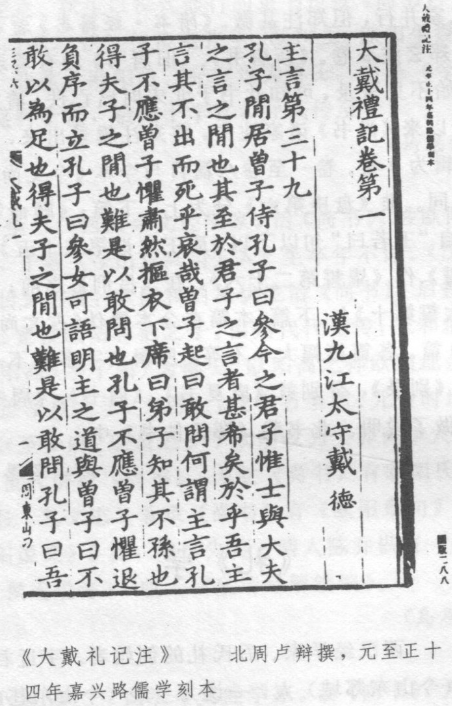 大戴禮記注
元至正十四年嘉興路儒學刻本
大戴禮記卷第一
漢九江太守戴 德
主言第三十九
孔子閒居曾子侍孔子曰參今之君子惟士與大夫
之言之閒也其至於君子之言者甚希矣於乎吾主
言其不出而死乎哀哉曾子起曰敢問何謂主言孔
子不應曾子懼肅然摳衣下席曰弟子知其不孫也
得夫子之閒也難是以敢問也孔子不應曾子懼退
負序而立孔子曰參女可語明主之道與曾子曰不
敢以為足也得夫子之閒也難是以敢問孔子曰吾
圖版二八八
《大戴礼记注》 北周卢辩撰，元至正十
四年嘉兴路儒学刻本